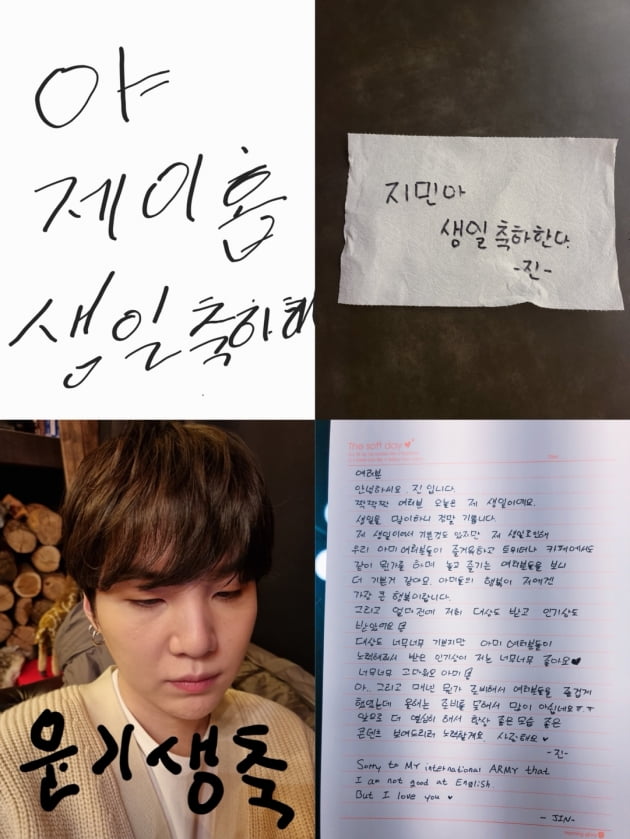 야
제이홉
생일축하해
지민아
생일 축하한다.
-진-
윤기생축
The soft day
여러분
안녕하세요. 진입니다.
짝짝짝 여러분 오늘은 제 생일이에요.
생일을 맞이하니 정말 기쁩니다.
제 생일이어서 기쁜것도 있지만 제 생일로인해
우리 아미 여러분들이 즐거워하고 트위터나 카페에서도
같이 뭔가를 하며 놀고 즐기는 여러분들을 보니
더 기쁜거 같아요. 아미들의 행복이 저에겐
가장 큰 행복이랍니다.
그리고 얼마전에 저희 대상도 받고 인기상도
받았어요
대상도 너무너무 기쁘지만 아미 여러분들이
노력해줘서 받은 인기상이 저는 너무너무 좋아요♥
너무너무 고마워요 아미
아.. 그리고 매년 뭔가 준비해서 여러분들을 즐겁게
했었는데 올해는 준비를 못해서 많이 아쉽네요ㅠㅠ
앞으로 더 열심히 해서 항상 좋은 모습 좋은
콘텐츠 보여드리려 노력할게요. 사랑해요♥
-진-
Sorry to MY international ARMY that
I am not good at English.
But I love you ♥
- JIN -